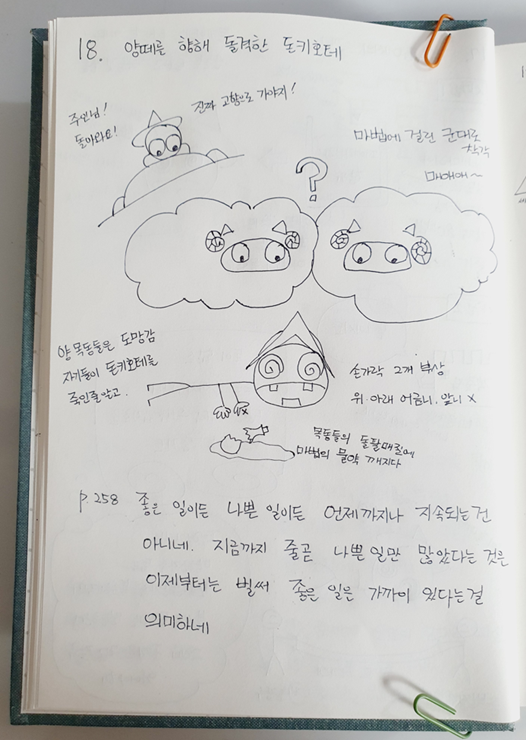 18. 양떼를 향해 돌격한 돈키호테
주인님!
돌아와요!
진짜 고향으로 가야지!
마법에 걸린 군대로
착각
매애애~
?
양 목동들은 도망감
자기들이 돈키호테를
죽인줄 알고.
손가락 2개 부상
위.아래 어금니. 앞니 X
목동들의 돌팔매질에
마법의 물약 깨지다
p 258 좋은 일이든 나쁜 일이든 언제까지나 지속되는건
아니네. 지금까지 줄곧 나쁜 일만 많았다는 것은
이제부터는 벌써 좋은 일은 가까이 있다는걸
의미하네